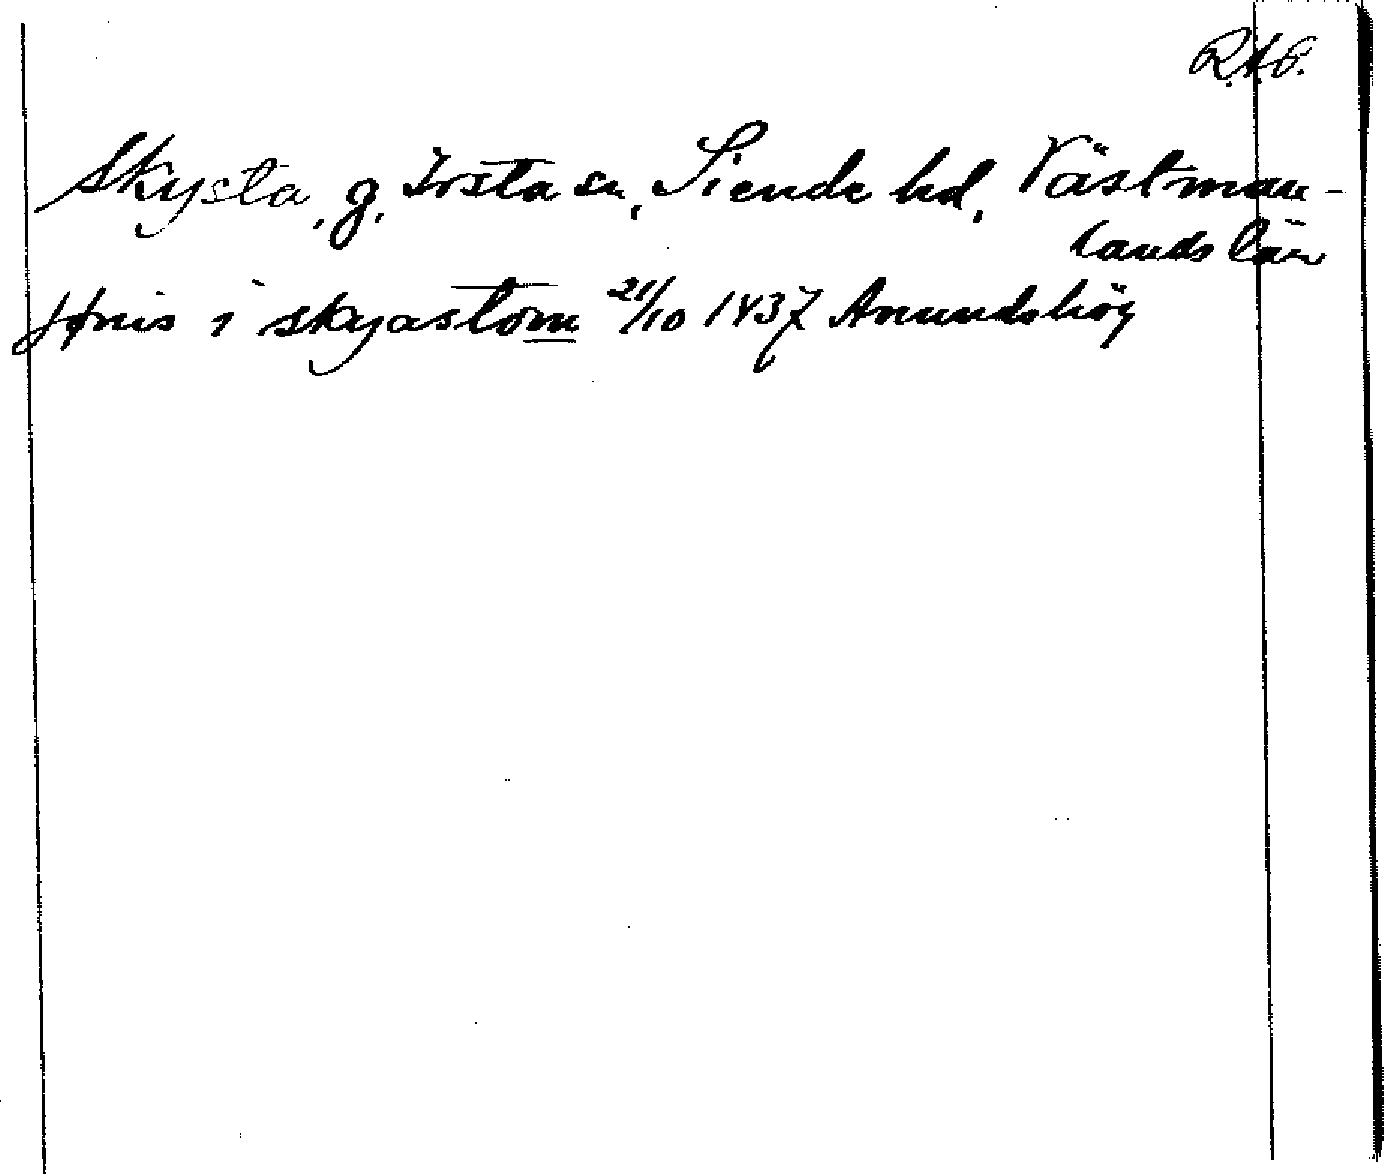 R.A.P.
Skysta, g, Irsta sn, Siende hd, Västman-
lands län
Jønis i skyastom 21/10 1437 Anundshög